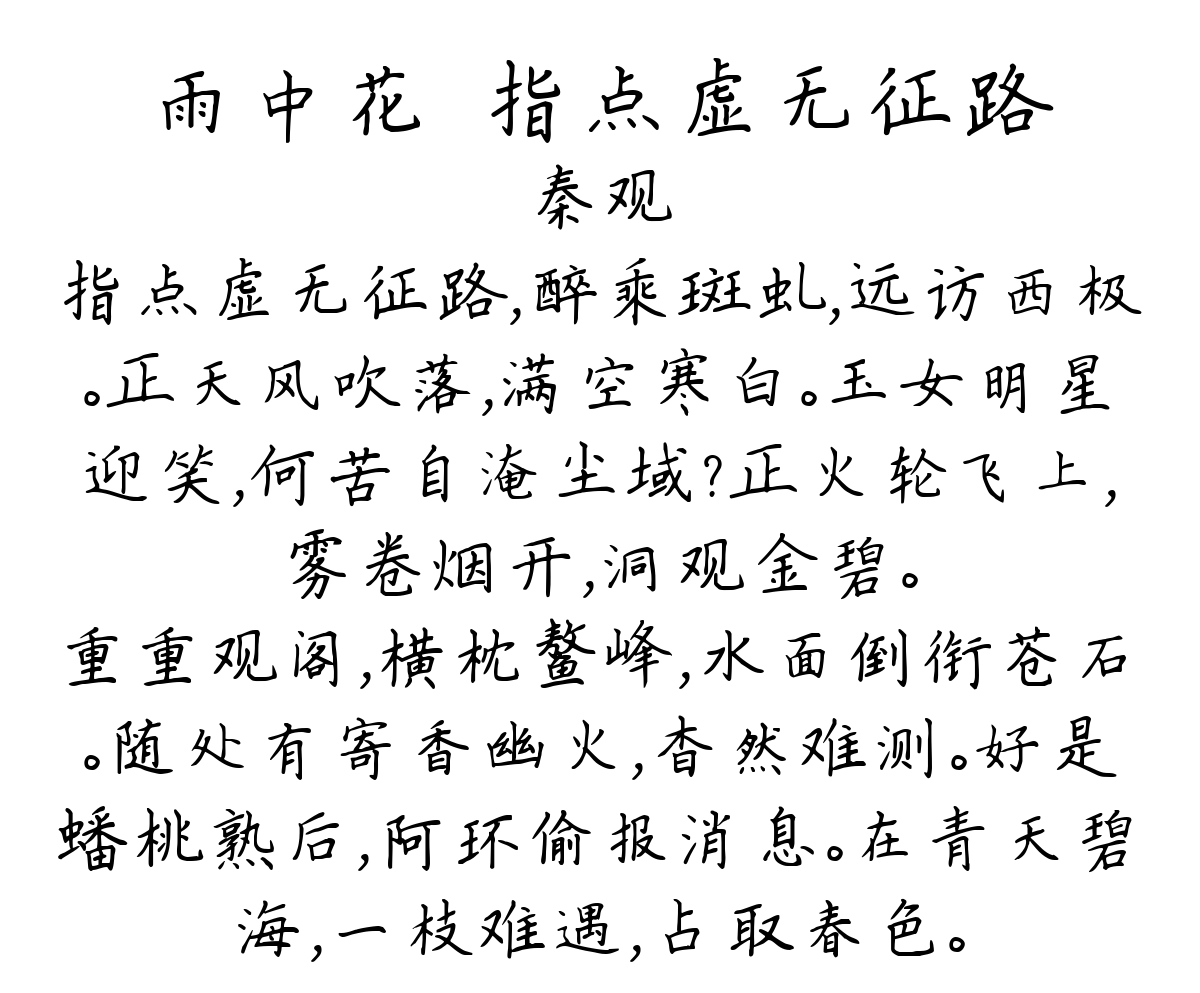 雨中花 指点虚无征路
秦观
指点虚无征路,醉乘斑虬,远访西极
。正天风吹落,满空寒白。玉女明星
迎笑,何苦自淹尘域?正火轮飞上,
雾卷烟开,洞观金碧。
重重观阁,横枕鳌峰,水面倒衔苍石
。随处有寄香幽火,杳然难测。好是
蟠桃熟后,阿环偷报消息。在青天碧
海,一枝难遇,占取春色。